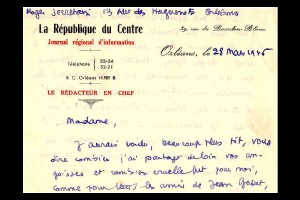 Roger Secrétain 13 rue des Huguenots Orléans
La République du Centre
Journal régional d'information
29, rue du Bourdon-Blanc
Orléans, le 28 Mars 1945
Téléphone
33-24
52-21
R. C. Orléans
LE RÉDACTEUR EN CHEF
Madame,
J'aurais voulu, beaucoup plus tôt, vous
dire combien j'ai partagé de loin vos an-
goisses et combien cruelle fut pour moi,
comme pour tous les amis de Jean